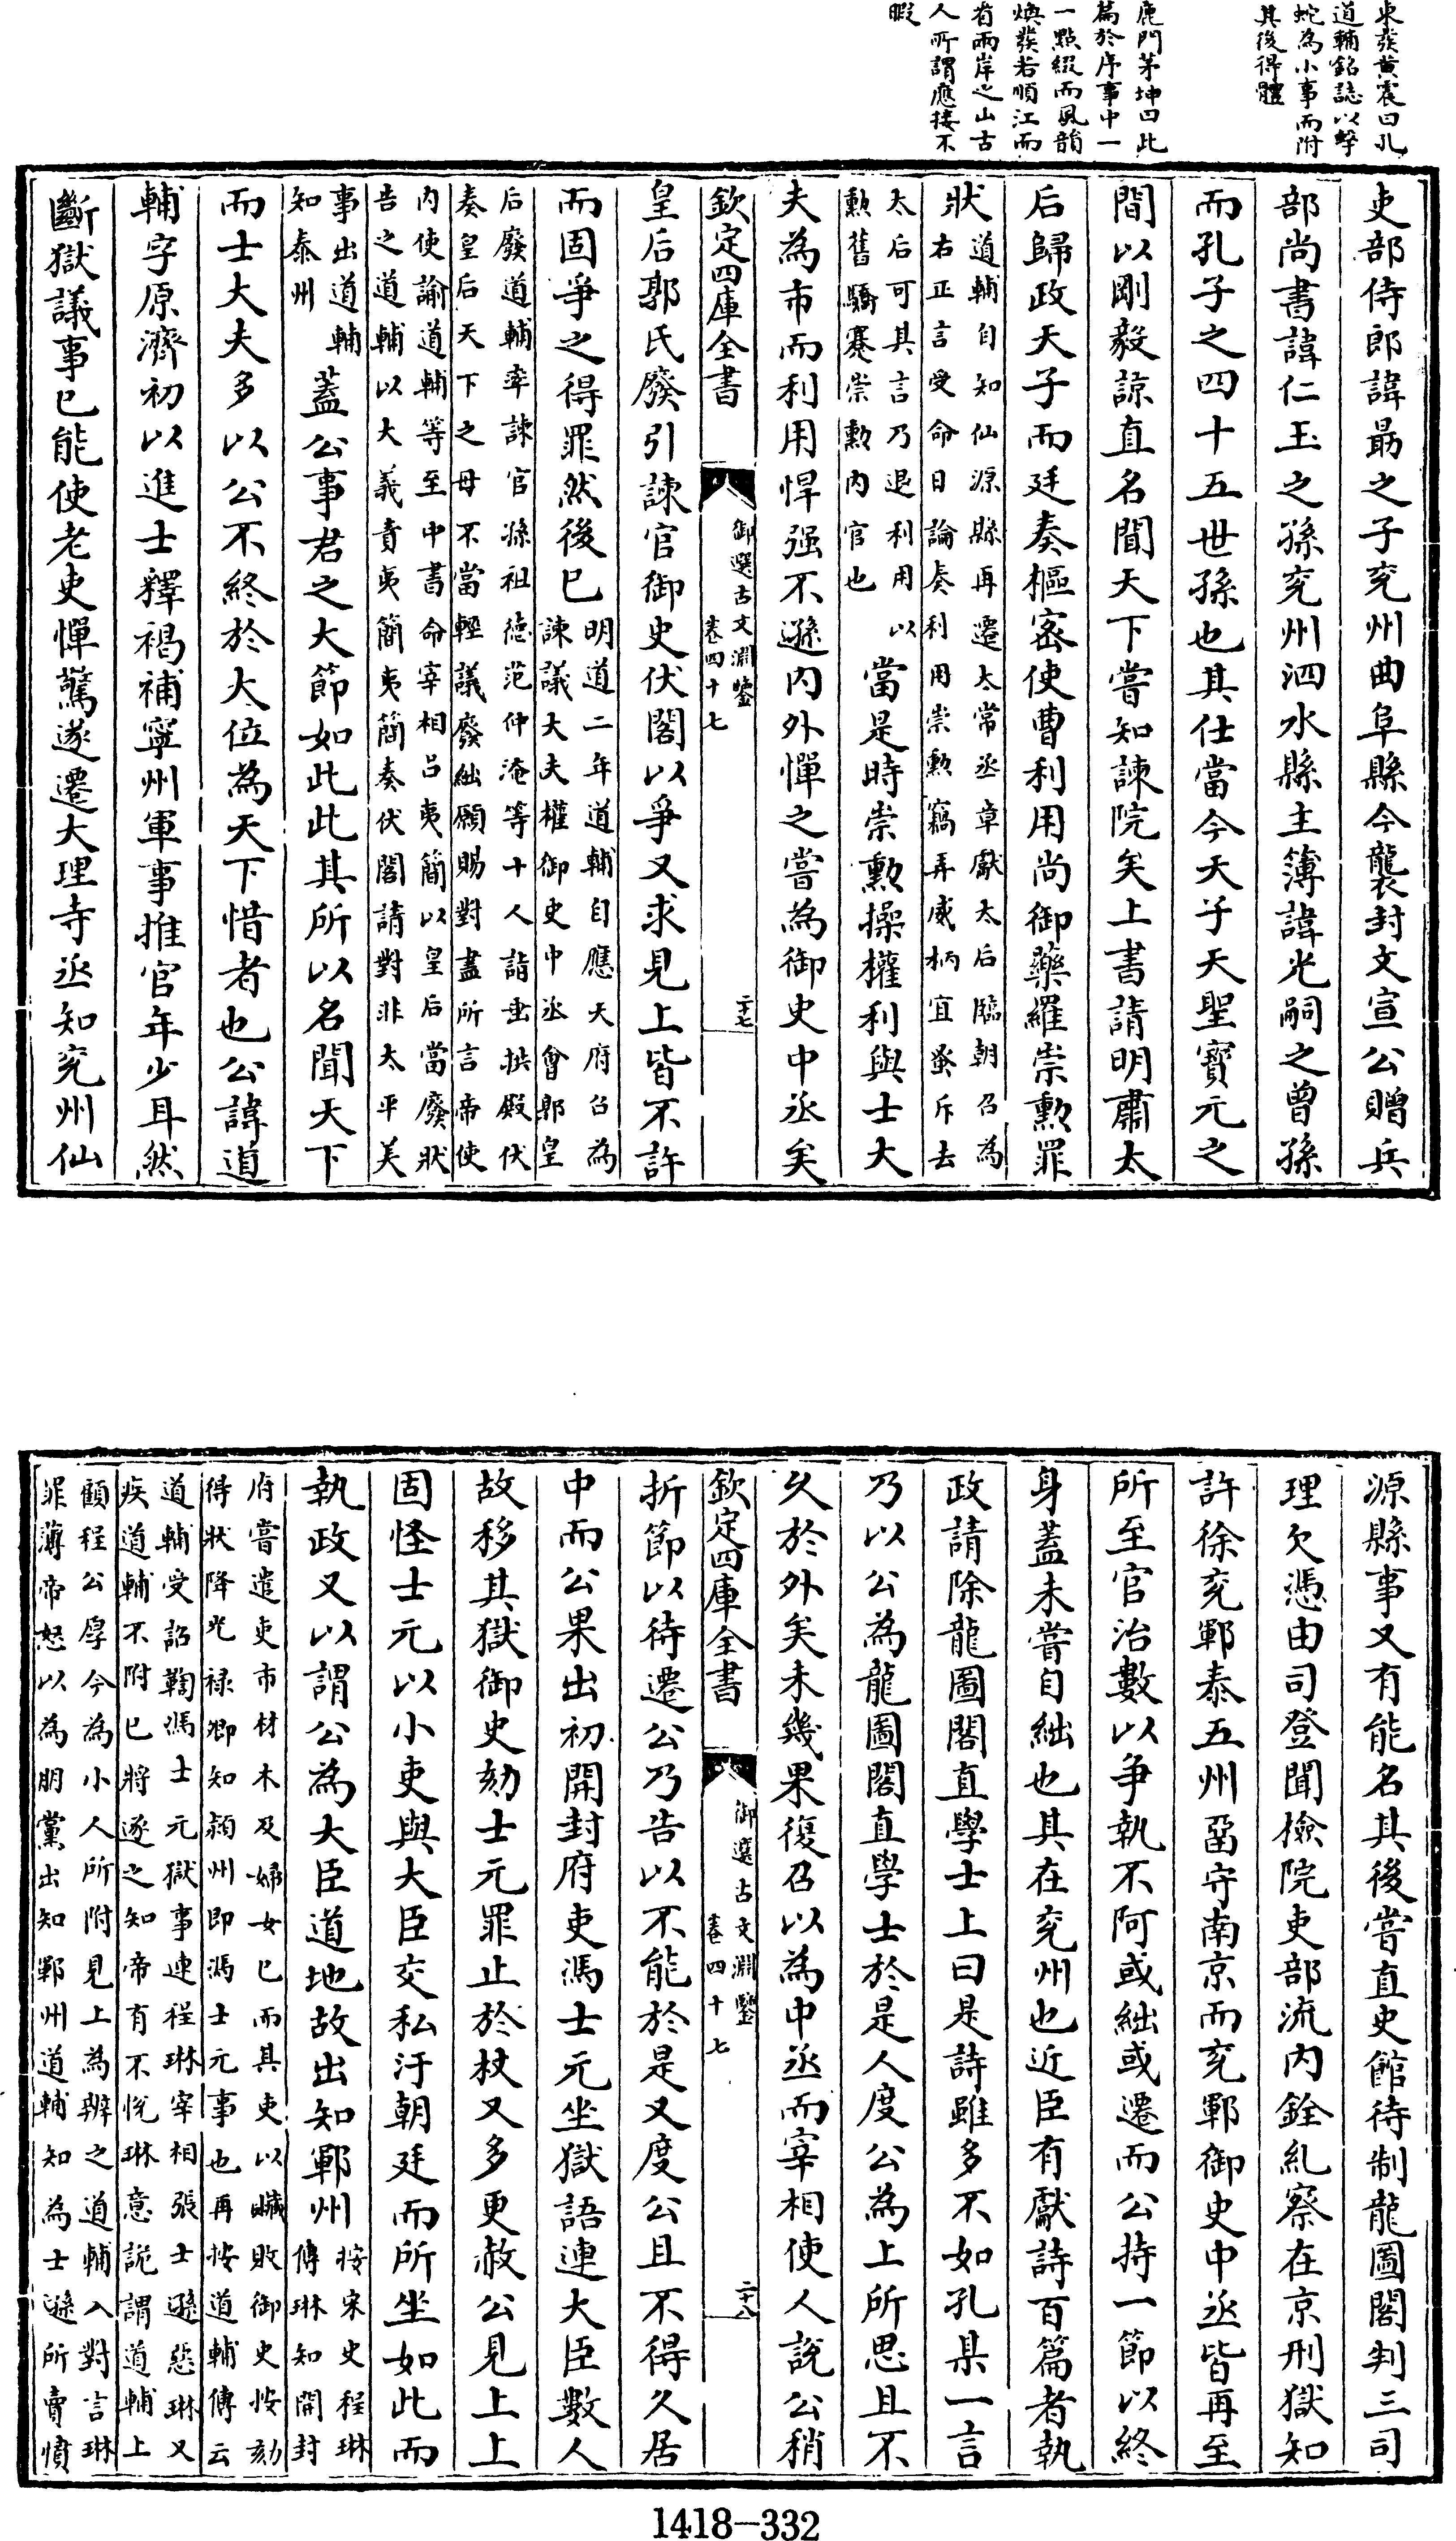 東發黃震曰孔
道輔銘誌以擊
蛇為小事而附
其後得體
鹿門茅坤曰此
篇於序事中一
一點綴而風韻
煥發若順江而
省兩岸之山古
人所謂應接不
暇
吏部侍郎諱勗之子兖州曲阜縣令襲封文宣公贈兵
部尚書諱仁玉之孫兖州泗水縣主簿諱光嗣之曾孫
而孔子之四十五世孫也其仕當今天子天聖寶元之
間以剛毅諒直名聞天下嘗知諫院矣上書請明肅太
后歸政天子而廷奏樞密使曹利用尚御藥羅崇勲罪
狀
道輔自知仙源縣再遷太常丞章獻太后臨朝召為
右正言受命日論奏利用崇勲竊弄威柄宜蚤斥去
太后可其言乃退利用以
勲舊驕蹇崇勲内官也
當是時崇勲操權利與士大
夫為市而利用悍强不遜内外憚之嘗為御史中丞矣
欽定四庫全書
御選古文淵鑒
卷四十七
二十七
皇后郭氏廢引諫官御史伏閤以爭又求見上皆不許
而固爭之得罪然後已
明道二年道輔自應天府召為
諫議大夫權御史中丞會郭皇
后廢道輔率諫官孫祖德范仲淹等十人詣垂拱殿伏
奏皇后天下之母不當輕議廢絀願賜對盡所言帝使
内使諭道輔等至中書命宰相吕夷簡以皇后當廢狀
告之道輔以大義責夷簡夷簡奏伏閤請對非太平美
事出道輔
知泰州
蓋公事君之大節如此此其所以名聞天下
而士大夫多以公不終於大位為天下惜者也公諱道
輔字原濟初以進士釋褐補寧州軍事推官年少耳然
斷獄議事已能使老吏憚驚遂遷大理寺丞知兖州仙
源縣事又有能名其後嘗直史館待制龍圖閣判三司
理欠憑由司登聞檢院吏部流内銓糺察在京刑獄知
許徐兖鄆泰五州畱守南京而兖鄆御史中丞皆再至
所至官治數以爭執不阿或絀或遷而公持一節以終
身蓋未嘗自絀也其在兖州也近臣有獻詩百篇者執
政請除龍圖閣直學士上曰是詩雖多不如孔某一言
乃以公為龍圖閣直學士於是人度公為上所思且不
久於外矣未幾果復召以為中丞而宰相使人說公稍
欽定四庫全書
御選古文淵鑒
卷四十七
二十八
折節以待遷公乃告以不能於是又度公且不得久居
中而公果出初開封府吏馮士元坐獄語連大臣數人
故移其獄御史劾士元罪止於杖又多更赦公見上上
固怪士元以小吏與大臣交私汙朝廷而所坐如此而
執政又以謂公為大臣道地故出知鄆州
按宋史程琳
傳琳知開封
府嘗遣吏市材木及婦女已而具吏以贓敗御史按劾
得狀降光禄卿知潁州即馮士元事也再按道輔傳云
道輔受詔鞫馮士元獄事連程琳宰相張士遜惡琳又
疾道輔不附已將逐之知帝有不悅琳意詭謂道輔上
顧程公厚今為小人所附見上為辨之道輔入對言琳
罪薄帝怒以為朋黨出知鄆州道輔知為士遜所賣憤
1418-332